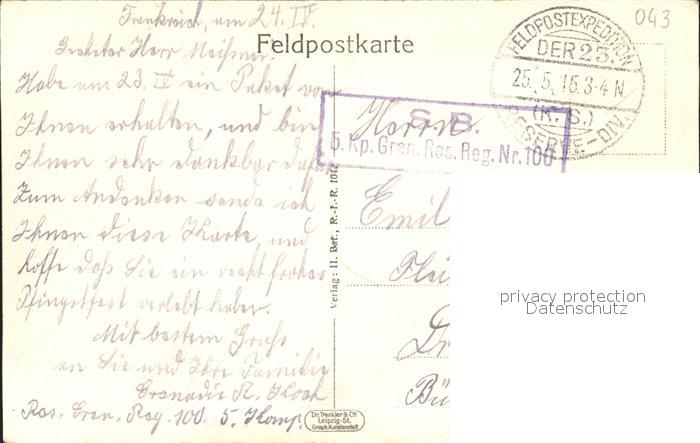 043
Frankreich, am 24. IV.
Geehrter Herr Meißner.
Feldpostkarte
FELDPOSTEXPEDITION
DER 23.
25. 5. 15. 3-4 N
(K. S.)
RESERVE-DIV.
Habe am 23. IV ein Paket von
Ihnen erhalten, und bin
Ihnen sehr dankbar dafür
Zum Andenken sende ich
Ihnen diese Karte, und
hoffe daß Sie ein recht frohes
Pfingstfest verlebt haben.
Mit bestem Gruß
an Sie und Ihre Familie
Grenadir R. Koch
Res. Gren. Reg. 100. 5. Komp.
S. B.
5. Kp. Gren. Res. Reg. Nr. 100
Herrn
Emil
Verlag: II. Bat., R.-I.-R. 10
Dr. Trenkler & Co
Leipzig-St.
Graph. Kunstanstalt
privacy protection
Datenschutz